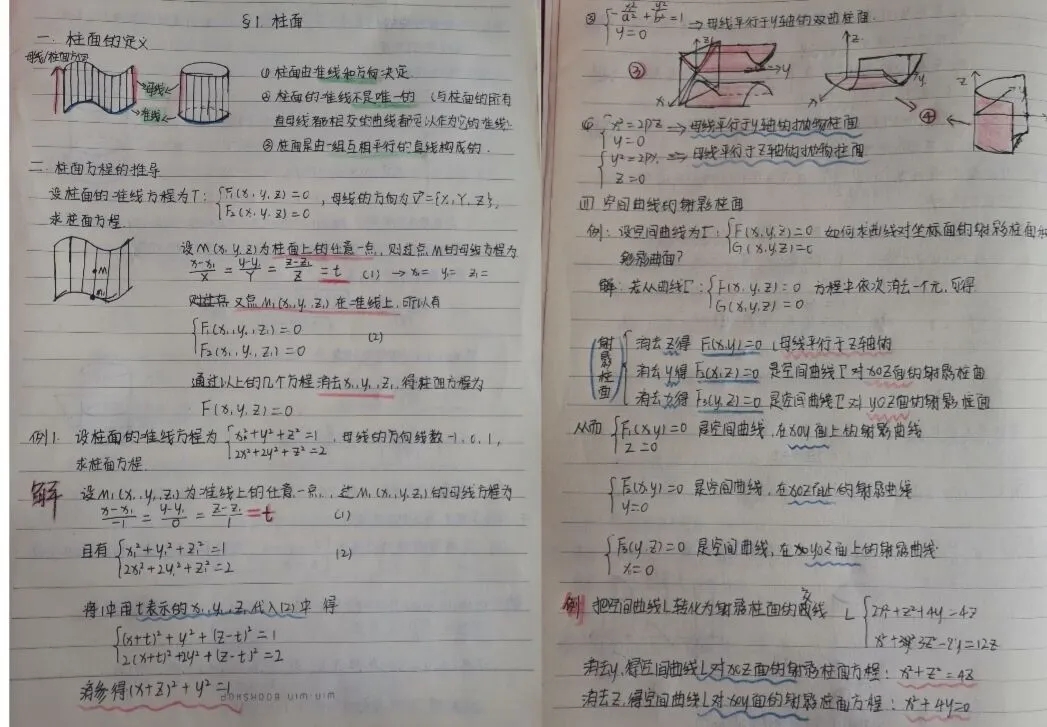 §1. 柱面
一. 柱面的定义
母线/柱面方向
母线
准线
① 柱面由准线和方向决定.
② 柱面的准线不是唯一的 (与柱面的所有
直母线都相交的曲线都可以作为它的准线.
③ 柱面是由一组互相平行的直线构成的.
二. 柱面方程的推导
设柱面的准线方程为Γ: { F₁(x, y, z) = 0 , 母线的方向为 v⃗ = {X, Y, Z},
F₂(x, y, z) = 0
求柱面方程.
设M(x, y, z)为柱面上的任意一点, 则过点M的母线方程为
(x-x₁)/X = (y-y₁)/Y = (z-z₁)/Z = t (1) → x₁= y₁= z₁=
又点M₁(x₁, y₁, z₁)在准线上, 所以有
{ F₁(x₁, y₁, z₁) = 0
F₂(x₁, y₁, z₁) = 0 (2)
通过以上的几个方程消去x₁, y₁, z₁, 得柱面方程为
F(x, y, z) = 0
例1. 设柱面的准线方程为 { x²+y²+z²=1 , 母线的方向数 -1, 0, 1,
2x²+2y²+z²=2
求柱面方程.
解 设M₁(x₁, y₁, z₁)为准线上的任意一点, 过M₁(x₁, y₁, z₁)的母线方程为
(x-x₁)/-1 = (y-y₁)/0 = (z-z₁)/1 = t (1)
且有 { x₁²+y₁²+z₁²=1 (2)
2x₁²+2y₁²+z₁²=2
将1中用t表示的x₁, y₁, z₁代入(2)中 得
{ (x+t)²+y²+(z-t)²=1
2(x+t)²+2y²+(z-t)²=2
消参得(x+z)²+y²=1
③ { -x²/a² + y²/b² = 1 → 母线平行于y轴的双曲柱面.
y=0
z
y
x
③
z
y
x
④
z
④ { x²=2pz → 母线平行于y轴的抛物柱面
y=0
{ y²=2px → 母线平行于z轴的抛物柱面
z=0
四 空间曲线的射影柱面
例: 设空间曲线为Γ: { F(x, y, z)=0 如何求曲线对坐标面的射影柱面和
G(x, y, z)=0
射影曲面?
解: 若从曲线Γ: { F(x, y, z)=0 方程中依次消去一个元, 可得
G(x, y, z)=0
射影柱面
消去z得 F₁(x, y)=0 (母线平行于z轴的
消去y得 F₂(x, z)=0 是空间曲线Γ对xOz面的射影柱面
消去x得 F₃(y, z)=0 是空间曲线Γ对yOz面的射影柱面
从而 { F₁(x, y)=0 是空间曲线, 在xoy面上的射影曲线
z=0
{ F₂(x, y)=0 是空间曲线, 在xoz面上的射影曲线
y=0
{ F₃(y, z)=0 是空间曲线, 在yoz面上的射影曲线.
x=0
例 把空间曲线L转化为射影柱面的交线 L { 2y²+z²+4y=4z
x²+3z²-8y=12z
消去y, 得空间曲线L对xoz面的射影柱面方程: x²+z²=4z
消去z, 得空间曲线L对xoy面的射影柱面方程: x²+4y=0